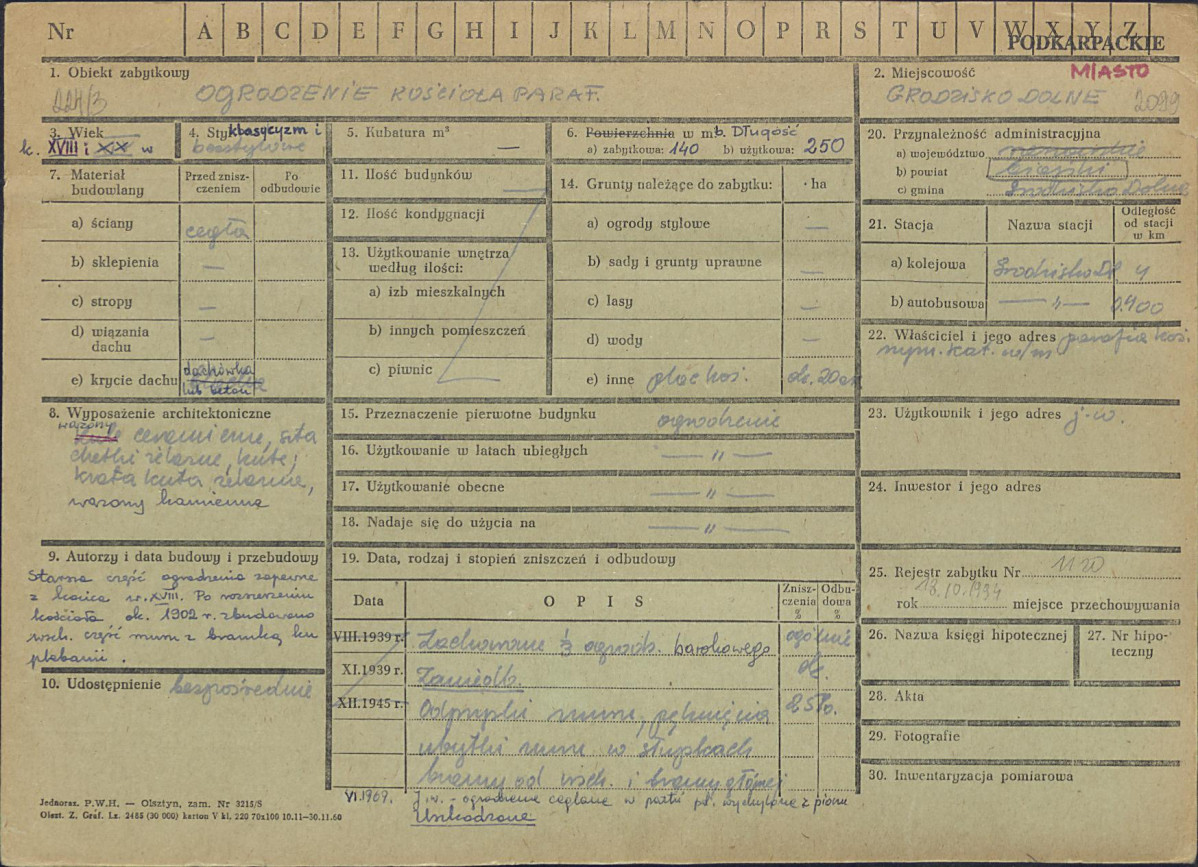 Nr A B C D E F G H I J K L M N O P R S T U V W X Y Z
PODKARPACKIE
1. Obiekt zabytkowy
224/3 OGRODZENIE KOŚCIOŁA PARAF.
2. Miejscowość MIASTO
GRODZISKO DOLNE 2099
3. Wiek
k. XVIII i XIX w
4. Styl klasycyzm i
bezstylowe
5. Kubatura m³
—
6. Powierzchnia w m b. Długość
a) zabytkowa: 140 b) użytkowa: 250
20. Przynależność administracyjna
a) województwo rzeszowskie
b) powiat
c) gmina Grodzisko Dolne
7. Materiał budowlany
Przed znisz-
czeniem
Po
odbudowie
a) ściany cegła
b) sklepienia —
c) stropy —
d) wiązania
dachu —
e) krycie dachu dachówka
lub beton
11. Ilość budynków —
12. Ilość kondygnacji
13. Użytkowanie wnętrza
według ilości:
a) izb mieszkalnych
b) innych pomieszczeń
c) piwnic
14. Grunty należące do zabytku: ha
a) ogrody stylowe —
b) sady i grunty uprawne —
c) lasy —
d) wody —
e) inne plac koś. ok. 20 a
21. Stacja Nazwa stacji
Odległość
od stacji
w km
a) kolejowa Grodzisko Dl. 4
b) autobusowa — „ — 0.400
22. Właściciel i jego adres parafia koś.
rzym. kat. w/m
8. Wyposażenie architektoniczne
wazony
kule ceramiczne, sita
żelazne, kute;
krata kuta żelazna,
wazony kamienne
15. Przeznaczenie pierwotne budynku ogrodzenie
16. Użytkowanie w latach ubiegłych — „ —
17. Użytkowanie obecne — „ —
18. Nadaje się do użycia na — „ —
23. Użytkownik i jego adres j.w.
24. Inwestor i jego adres
9. Autorzy i data budowy i przebudowy
Starsza część ogrodzenia zapewne
z końca w. XVIII. Po rozszerzeniu
kościoła ok. 1902 r. zbudowano
wsch. część muru z bramką ku
plebanii.
10. Udostępnienie bezpośrednie
19. Data, rodzaj i stopień zniszczeń i odbudowy
Data OPIS
Znisz-
czenia
%
Odbu-
dowa
%
VIII.1939 r. Zachowane ⅓ ogrodz. barokowego ogólnie
XI.1939 r. Zaniedb. ok.
XII.1945 r. Odpryski muru, pęknięcia 25%.
ubytki muru w słupkach
bramy od wsch. i bramy głównej
VI.1969. J.w. - ogrodzenie ceglane w partii pd. wychylone z pionu
Uszkodzone
25. Rejestr zabytku Nr 1120
rok 18.10.1934 miejsce przechowywania
26. Nazwa księgi hipotecznej
27. Nr hipo-
teczny
28. Akta
29. Fotografie
30. Inwentaryzacja pomiarowa
Jednoraz. P.W.H. — Olsztyn, zam. Nr 3215/S
Olszt. Z. Graf. Lz. 2485 (30 000) karton V kl. 220 70x100 10.11—30.11.60